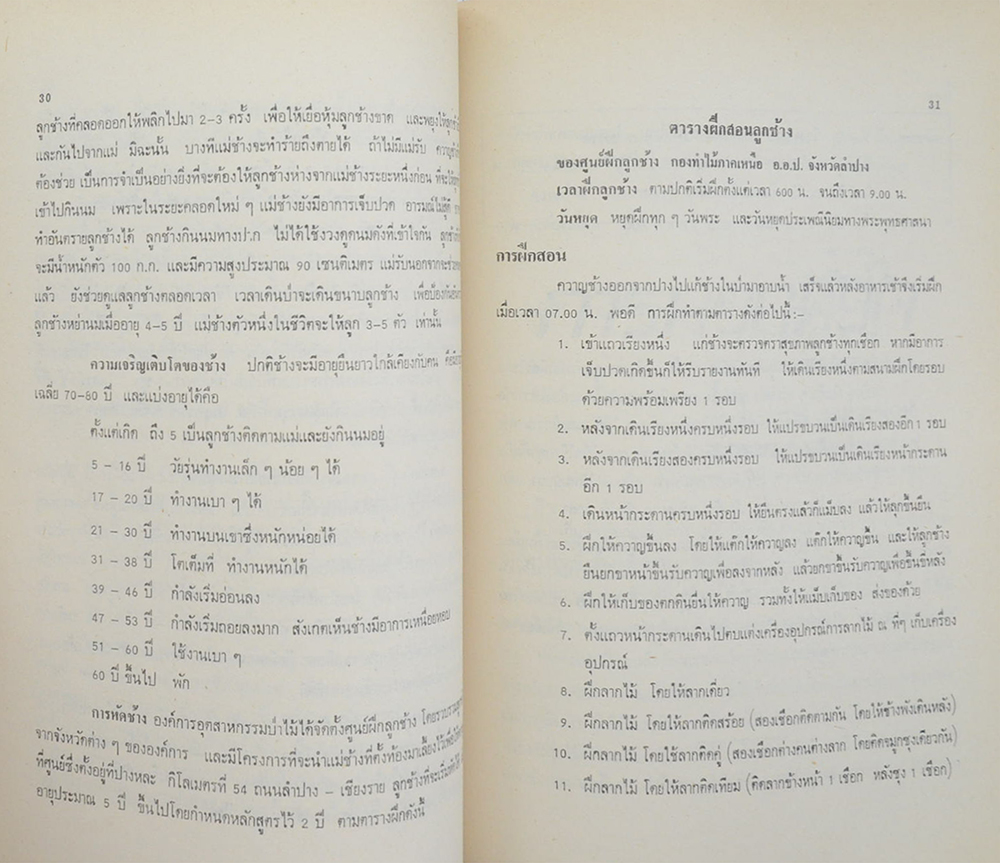 30
ลูกช้างที่คลอดออกให้พลิกไปมา 2-3 ครั้ง เพื่อให้เยื่อหุ้มลูกช้างขาด และพยุงให้ลูกช้าง
และกันไปจากแม่ มิฉะนั้น บางทีแม่ช้างจะทำร้ายถึงตายได้ ถ้าไม่มีแม่รับ ควาญช้าง
ต้องช่วย เป็นการจำเป็นอย่างยิ่งที่จะต้องให้ลูกช้างห่างจากแม่ช้างระยะหนึ่งก่อน
เข้าไปกินนม เพราะในระยะคลอดใหม่ ๆ แม่ช้างยังมีอาการเจ็บปวด อารมณ์ไม่สู้ดี
ทำอันตรายลูกช้างได้ ลูกช้างกินนมทางปาก ไม่ได้ใช้งวงดูดนมดังที่เข้าใจกัน ลูกช้าง
จะมีน้ำหนักตัว 100 ก.ก. และมีความสูงประมาณ 90 เซนติเมตร แม่รับนอกจากจะช่วย
แล้ว ยังช่วยดูแลลูกช้างตลอดเวลา เวลาเดินป่าจะเดินขนาบลูกช้าง เพื่อป้องกัน
ลูกช้างหย่านมเมื่ออายุ 4-5 ปี แม่ช้างตัวหนึ่งในชีวิตจะให้ลูก 3-5 ตัว เท่านั้น
ความเจริญเติบโตของช้าง ปกติช้างจะมีอายุยืนยาวใกล้เคียงกับคน
เฉลี่ย 70-80 ปี และแบ่งอายุได้คือ
ตั้งแต่เกิด ถึง 5 เป็นลูกช้างติดตามแม่และยังกินนมอยู่
5 - 16 ปี วัยรุ่นทำงานเล็ก ๆ น้อย ๆ ได้
17 - 20 ปี ทำงานเบา ๆ ได้
21 - 30 ปี ทำงานบนเขาซึ่งหนักหน่อยได้
31 - 38 ปี โตเต็มที่ ทำงานหนักได้
39 - 46 ปี กำลังเริ่มอ่อนลง
47 - 53 ปี กำลังเริ่มถอยลงมาก สังเกตเห็นช้างมีอาการเหนื่อยหอบ
51 - 60 ปี ใช้งานเบา ๆ
60 ปี ขึ้นไป พัก
การหัดช้าง องค์การอุตสาหกรรมป่าไม้ได้จัดตั้งศูนย์ฝึกลูกช้าง
จากจังหวัดต่าง ๆ ขององค์การ และมีโครงการที่จะนำแม่ช้างที่ตั้งท้องมาเลี้ยงไว้
ที่ศูนย์ซึ่งตั้งอยู่ที่ปางหละ กิโลเมตรที่ 54 ถนนลำปาง - เชียงราย ลูกช้างที่จะเริ่ม
อายุประมาณ 5 ปี ขึ้นไปโดยกำหนดหลักสูตรไว้ 2 ปี ตามตารางฝึกดังนี้
31
ตารางฝึกสอนลูกช้าง
ของศูนย์ฝึกลูกช้าง กองทำไม้ภาคเหนือ อ.อ.ป. จังหวัดลำปาง
เวลาฝึกลูกช้าง ตามปกติเริ่มฝึกตั้งแต่เวลา 600 น. จนถึงเวลา 9.00 น.
วันหยุด หยุดฝึกทุก ๆ วันพระ และวันหยุดประเพณีนิยมทางพระพุทธศาสนา
การฝึกสอน
ควาญช้างออกจากปางไปแก้ช้างในป่ามาอาบน้ำ เสร็จแล้วหลังอาหารเช้าจึงเริ่มฝึก
เมื่อเวลา 07.00 น. พอดี การฝึกทำตามตารางดังต่อไปนี้:-
1. เข้าแถวเรียงหนึ่ง แก่ช้างจะตรวจตราสุขภาพลูกช้างทุกเชือก หากมีอาการ
เจ็บปวดเกิดขึ้นก็ให้รีบรายงานทันที ให้เดินเรียงหนึ่งตามสนามฝึกโดยรอบ
ด้วยความพร้อมเพรียง 1 รอบ
2. หลังจากเดินเรียงหนึ่งครบหนึ่งรอบ ให้แปรขบวนเป็นเดินเรียงสองอีก 1 รอบ
3. หลังจากเดินเรียงสองครบหนึ่งรอบ ให้แปรขบวนเป็นเดินเรียงหน้ากระดาน
อีก 1 รอบ
4. เดินหน้ากระดานครบหนึ่งรอบ ให้ยืนตรงแล้วก็แม็บลง แล้วให้ลุกขึ้นยืน
5. ฝึกให้ควาญขึ้นลง โดยให้แต๊กให้ควาญลง แต๊กให้ควาญขึ้น และให้ลูกช้าง
ยืนยกขาหน้าขึ้นรับควาญเพื่อลงจากหลัง แล้วยกขาขึ้นรับควาญเพื่อขึ้นขี่หลัง
6. ฝึกให้เก็บของตกดินยื่นให้ควาญ รวมทั้งให้แม็บเก็บของ ส่งของด้วย
7. ตั้งแถวหน้ากระดานเดินไปตบแต่งเครื่องอุปกรณ์การลากไม้ ณ ที่ๆ เก็บเครื่อง
อุปกรณ์
8. ฝึกลากไม้ โดยให้ลากเดี่ยว
9. ฝึกลากไม้ โดยให้ลากติดสร้อย (สองเชือกติดตามกัน โดยให้ช้างพังเดินหลัง)
10. ฝึกลากไม้ โดยใช้ลากติดคู่ (สองเชือกต่างคนต่างลาก โดยติดจมูกซุงเดียวกัน)
11. ฝึกลากไม้ โดยให้ลากติดเทียม (ติดลากข้างหน้า 1 เชือก หลังซุง 1 เชือก)